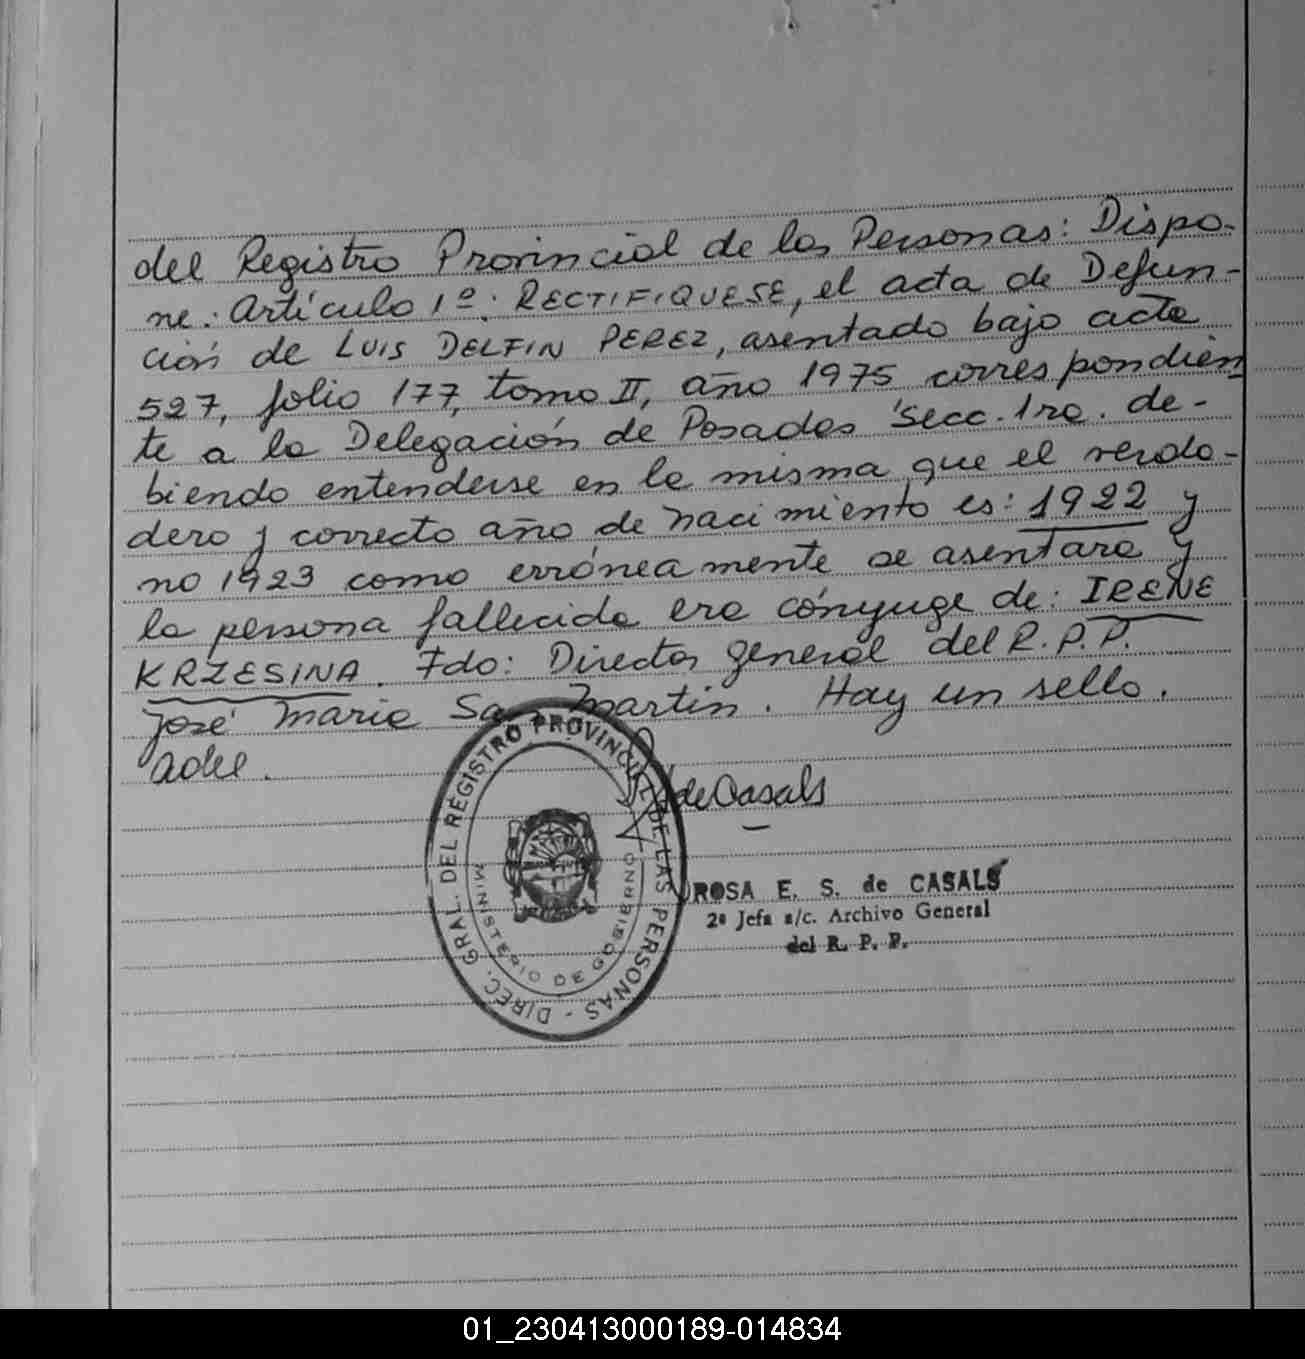 del Registro Provincial de las Personas: Dispo-
ne: Artículo 1º: RECTIFIQUESE, el acta de Defun-
ción de LUIS DELFIN PEREZ, asentado bajo acta
527, folio 177, tomo II, año 1975 correspondien
te a la Delegación de Posadas Secc. 1ra. de-
biendo entenderse en la misma que el verda-
dero y correcto año de nacimiento es: 1922 y
no 1923 como erróneamente se asentara y
la persona fallecida era cónyuge de: IRENE
KRZESINA. Fdo: Director general del R.P.P.
José Maria San Martin. Hay un sello.
de Casals
DIREC. GRAL. DEL REGISTRO PROVINCIAL DE LAS PERSONAS -
MINISTERIO DE GOBIERNO
ROSA E. S. de CASALS
2ª Jefa a/c. Archivo General
del R. P. P.
01_230413000189-014834